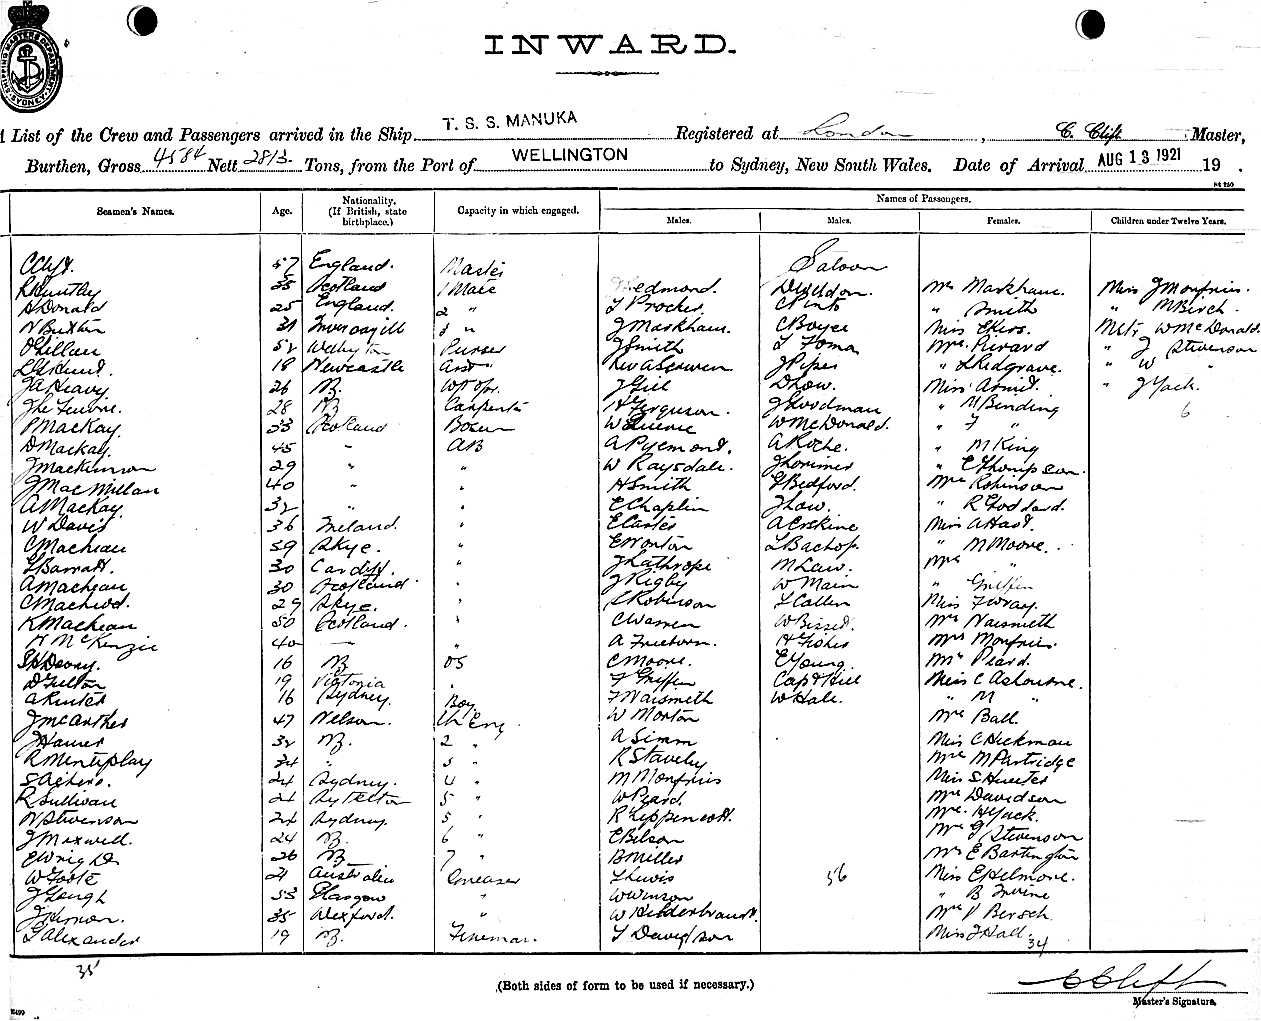 SHIPPING MASTERS DEPARTMENT SYDNEY
INWARD.
List of the Crew and Passengers arrived in the Ship T. S. S. MANUKA Registered at London, C. Clift Master,
Burthen, Gross 4584 Nett 2813 Tons, from the Port of WELLINGTON to Sydney, New South Wales. Date of Arrival AUG 13 1921 19 .
Seamen's Names. Age. Nationality. (If British, state birthplace.) Capacity in which engaged. Names of Passengers.
Males. Males. Females. Children under Twelve Years.
C Clift. 57 England. Master Saloon
R Huntley 35 Scotland 1 Mate Redmond. D Weldon. Mrs Markham. Miss J Monfries.
A Donald 25 England 2 " J Procter C Pinto " Smith " M Birch.
N Buxton 31 Invercargill 3 " J Markham. C Boyce Miss Mstr W McDonald
52 Wellington Purser J Smith L Toma Mrs Pierard " J Stevenson
18 Newcastle Asst " Rev J Piper " L Redgrave. " W "
26 NZ J Gill D Low. Miss " J Yack.
28 NZ Carpenter H Ferguson. J Woodman " M Binding 6
P MacKay. 33 Scotland Bosun W W McDonald. " F "
D Mackay. 45 " AB A Pyemont. A Roche. " M King
J Mackinnon 29 " " W Raysdale. J Lorimer " E Thompson.
J MacMillan 40 " " H Smith G Bedford. Mrs Robinson
A MacKay. 32 " " E Chaplin J Low. " R Goddard.
W Davis 36 Ireland. " E Carter A Erskine Miss A Hast.
C Maclean 59 Skye. " E Worton L Bachop. " M Moore.
G Barratt. 30 Cardiff. " J Lathrope M Law. Mrs "
A Maclean 30 Scotland " J Rigby W Main " Griffen
C Macleod. 29 Skye. " Robinson L Callen Miss F Wray.
K Maclean 50 Scotland. " C Warren W Bissed. Mrs Naismeth
H McKenzie 40 — " A H Fisher Mrs Monfries.
16 NZ OS C Moore. E Young. Mrs Peard.
D Fulton 19 Victoria " F Griffen Capt Hill Miss C Ashburne.
16 Sydney. Boy F Naismeth W Hale. " M "
J McArthur 47 Nelson. Ch Eng W Morton Mrs Ball
32 NZ. 2 " A Simm Miss C Hickman
R Mentiplay 34 " 3 " R Stavely Mrs M Partridge
24 Sydney. 4 " M Monfries Miss S Hunter
R Sullivan 21 Lyttelton 5 " W Peard. Mrs Davidson
N Stevenson 24 Sydney. 5 " R Mrs H Yack.
J Maxwell. 24 NZ. 6 " E Bilson Mrs G Stevenson
26 NZ 7 " B Miller Mrs E Bartington
W Foote 21 Australia Greaser L Lewis 56 Miss E Helmore.
J Gough 53 Glasgow " W Winson " B Irvine
35 Wexford. " W Hilderbrandt. Mrs P Bersch
G Alexander 19 NZ. Fireman. T Davidson Miss J Hall. 34
35
(Both sides of form to be used if necessary.)
C Clift
Master's Signature.